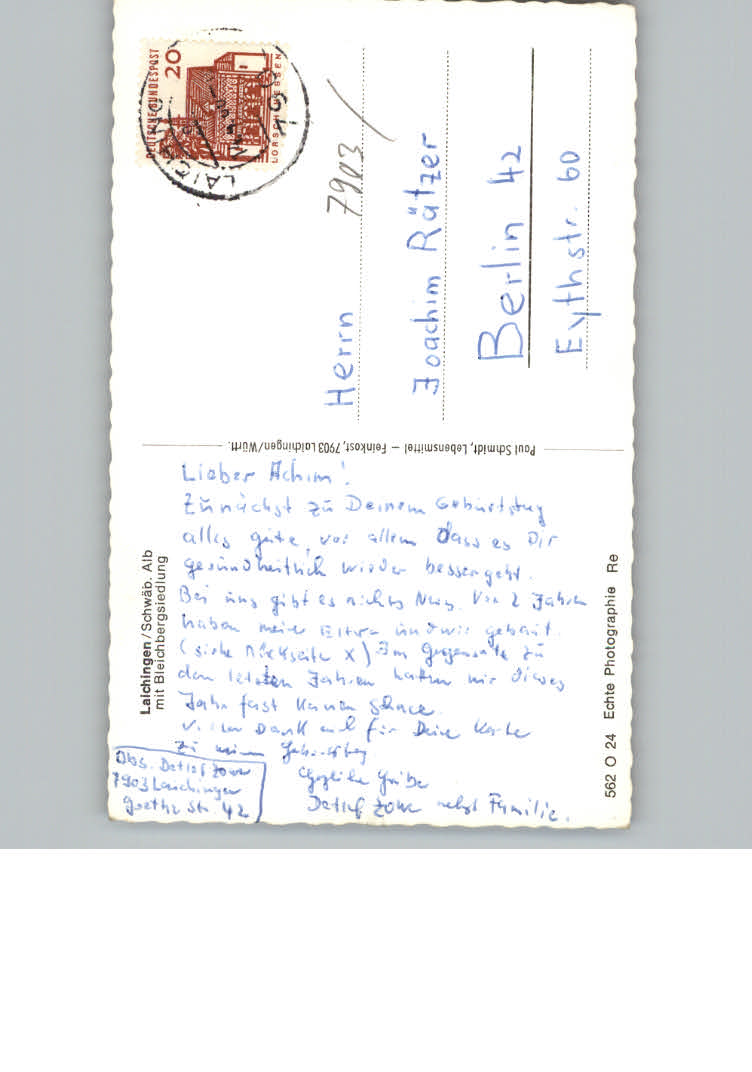 Lieber Achim!
Zunächst zu Deinem Geburtstag
alles gute, vor allem dass es Dir
gesundheitlich wieder besser geht.
Bei uns gibt es nichts Neues. Vor 2 Jahren
haben meine Eltern und wir gebaut.
(siehe Rückseite X) Im Gegensatz zu
den letzten Jahren hatten wir dieses
Jahr fast keinen Schnee.
Vielen Dank auch für Deine Karte
zu meinem Geburtstag
Herzliche Grüße
Detlef nebst Familie.
Abs. Detlef
7903 Laichingen
Goethe Str. 42
Laichingen/Schwäb. Alb
mit Bleichbergsiedlung
562 O 24 Echte Photographie Re
Paul Schmidt, Lebensmittel – Feinkost, 7903 Laichingen/Württ.
DEUTSCHE BUNDESPOST
20
LORSCH HESSEN
LAICHINGEN
7903
Herrn
Joachim Rätzer
Berlin 42
Eythstr. 60